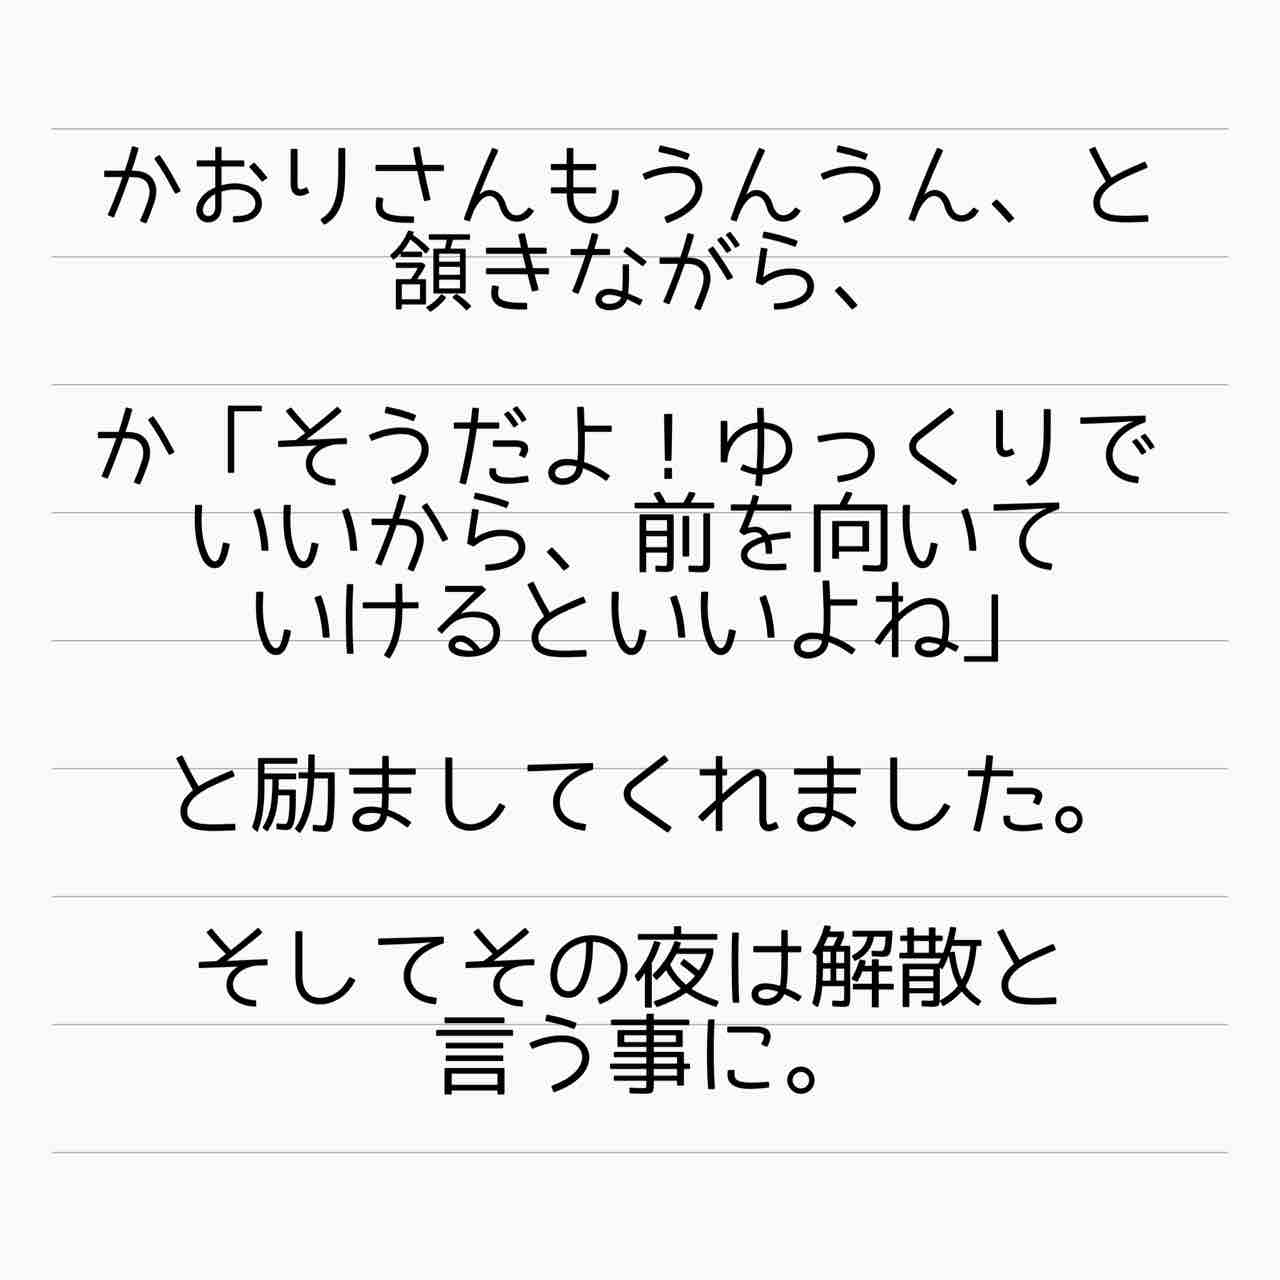 かおりさんもうんうん、と
頷きながら、
か「そうだよ！ゆっくりで
いいから、前を向いて
いけるといいよね」
と励ましてくれました。
そしてその夜は解散と
言う事に。